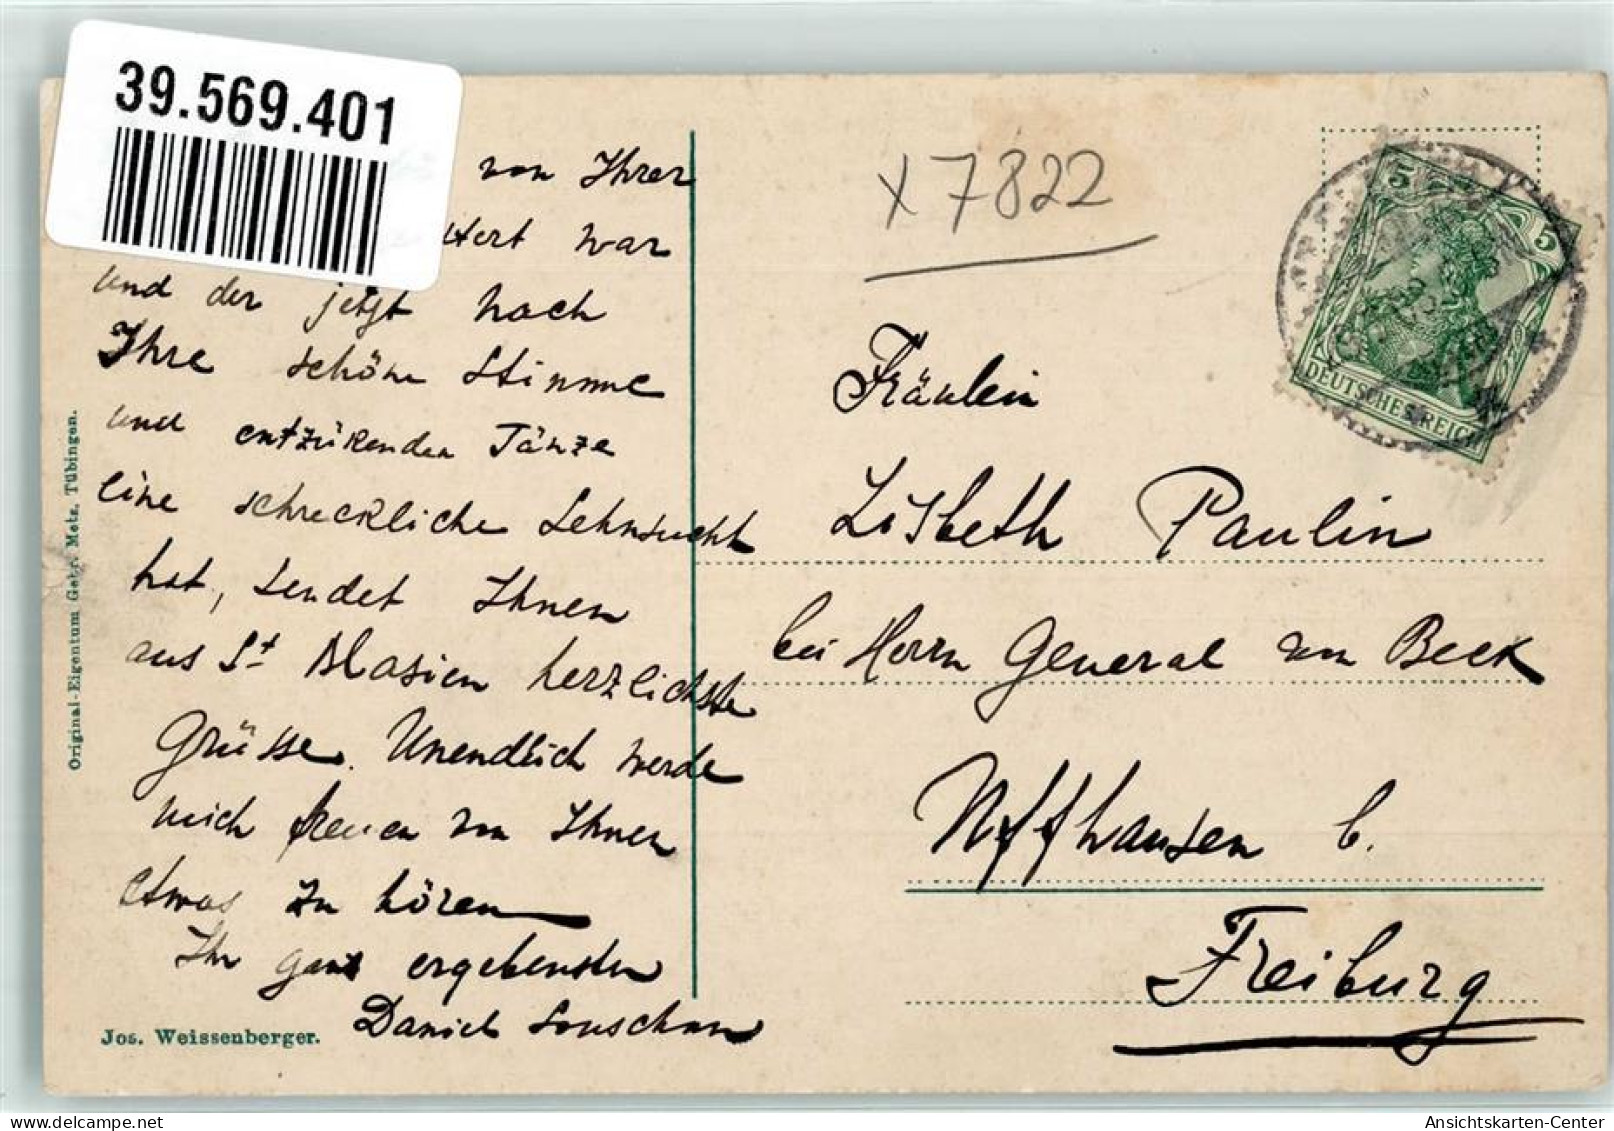 39.569.401
von Ihrer
war
und der jetzt nach
Ihre schöne Stimme
und entzükenden Tänze
eine schreckliche Sehnsucht
hat, sendet Ihnen
aus St Blasien herzlichste
Grüsse. Unendlich werde
mich freuen von Ihnen
etwas zu hören
Ihr ganz ergebensten
Daniel
Jos. Weissenberger.
Original-Eigentum Gebr. Metz, Tübingen.
x 7822
5 5
DEUTSCHES REICH
Fräulein
Lisbeth Paulin
bei Herrn General von Beck
Uffhausen b.
Freiburg
Ansichtskarten-Center